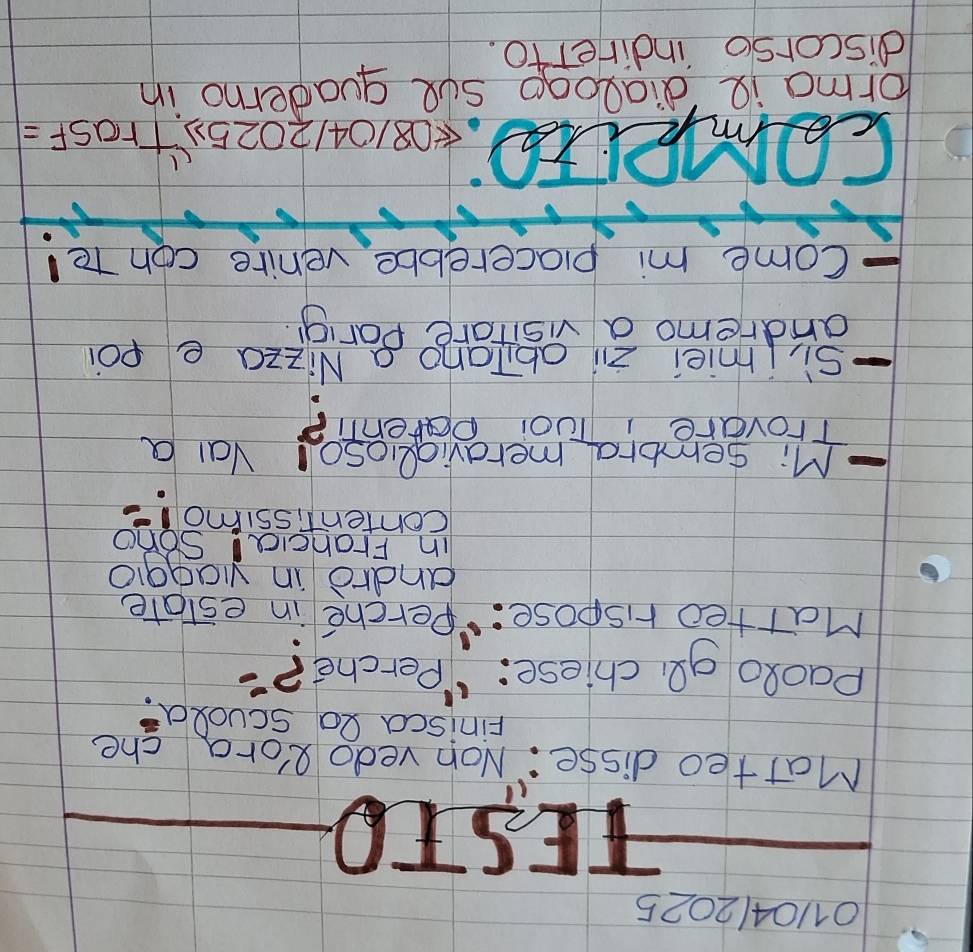 01/04/2025
TESTO
Matteo disse: "Non vedo l'ora che
finisca la scuola."
Paolo gli chiese: "Perché?"
Matteo rispose: "Perché in estate
andrò in viaggio
in Francia! Sono
contentissimo!"
- Mi sembra meraviglioso! Vai a
trovare i tuoi parenti?
- Sì, i miei zii abitano a Nizza e poi
andremo a visitare Parigi.
- Come mi piacerebbe venire con te!
COMPITO: «08/04/2025» "Trasf=
orma il dialogo sul quaderno in
discorso indiretto.